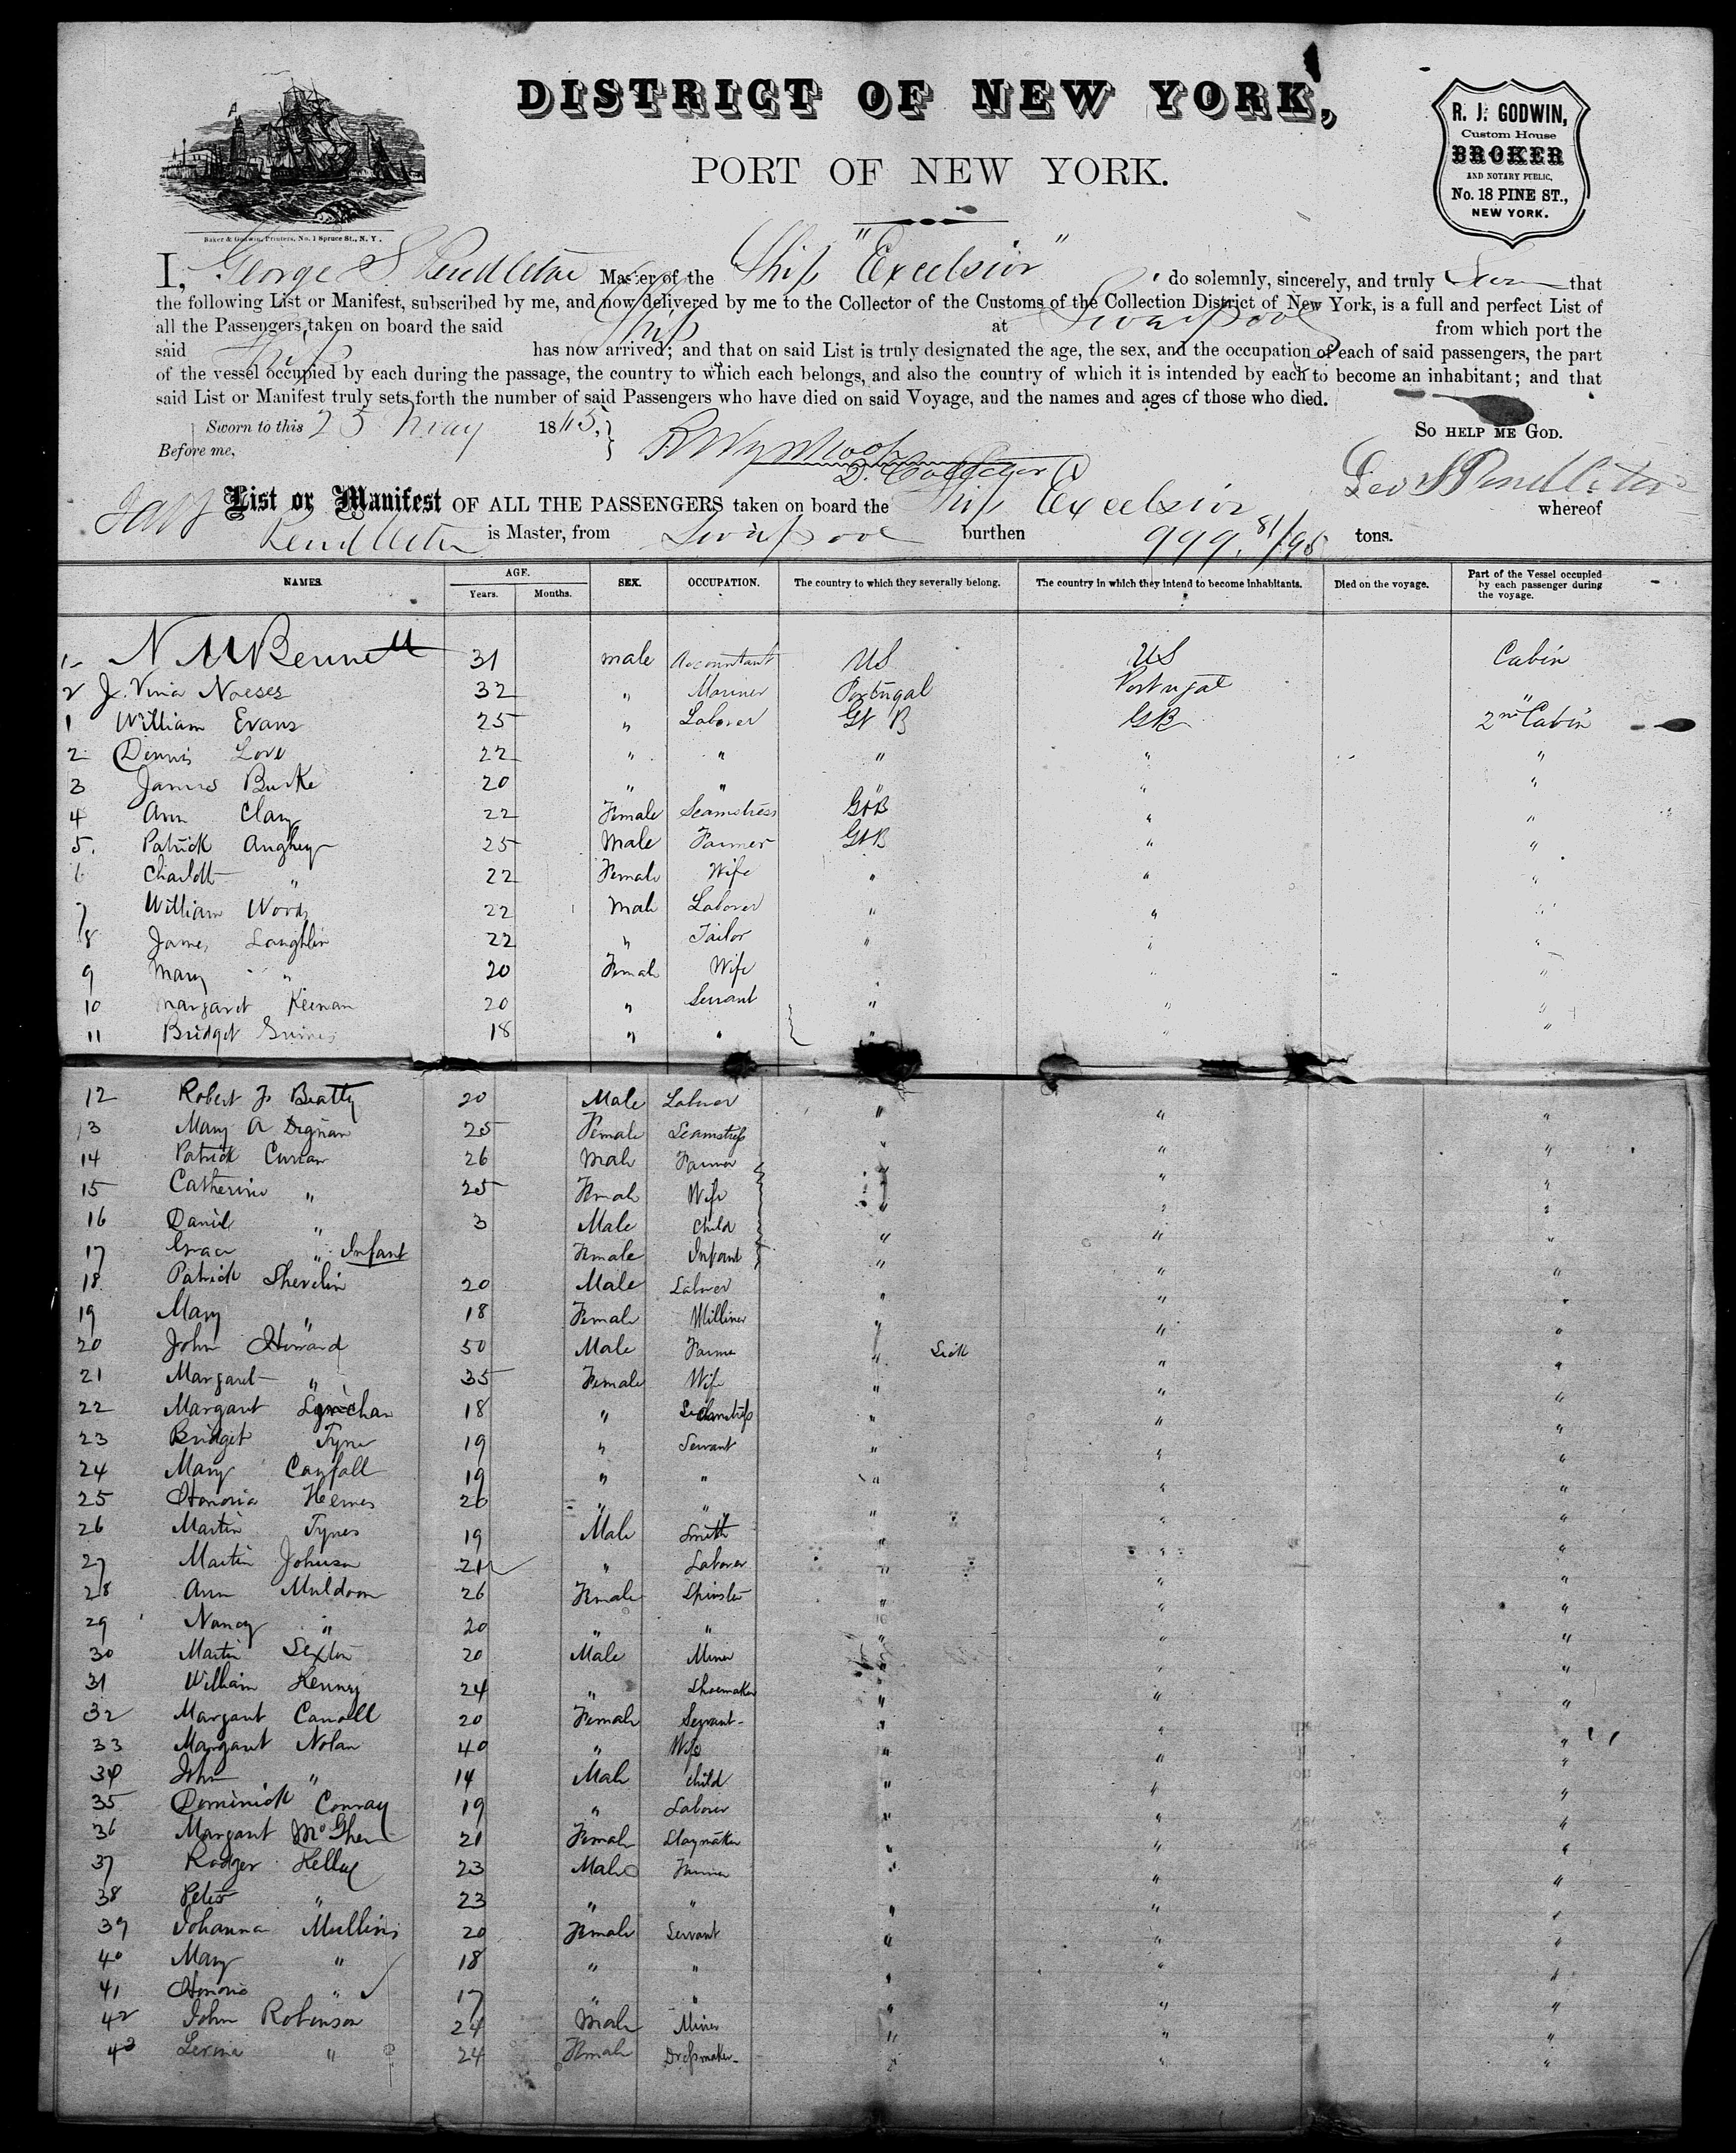 DISTRICT OF NEW YORK,
PORT OF NEW YORK.
R. J. GODWIN,
Custom House
BROKER
AND NOTARY PUBLIC,
No. 18 PINE ST.,
NEW YORK.
Baker & Godwin, Printers, No. 1 Spruce St., N. Y.
I, George S. Pendleton Master of the Ship "Excelsior" do solemnly, sincerely, and truly that
the following List or Manifest, subscribed by me, and now delivered by me to the Collector of the Customs of the Collection District of New York, is a full and perfect List of
all the Passengers taken on board the said Ship at Liverpool from which port the
said Ship has now arrived; and that on said List is truly designated the age, the sex, and the occupation of each of said passengers, the part
of the vessel occupied by each during the passage, the country to which each belongs, and also the country of which it is intended by each to become an inhabitant; and that
said List or Manifest truly sets forth the number of said Passengers who have died on said Voyage, and the names and ages of those who died.
Sworn to this 25 May 18 SO HELP ME GOD.
Before me,
Geo S Pendleton
List or Manifest OF ALL THE PASSENGERS taken on board the Ship Excelsior whereof
Pendleton is Master, from Liverpool burthen 999. 81/95 tons.
NAMES. AGE. Years. Months. SEX. OCCUPATION. The country to which they severally belong. The country in which they intend to become inhabitants. Died on the voyage. Part of the Vessel occupied by each passenger during the voyage.
1 N M Bennett 31 male Accountant US US Cabin
2 J. Vina 32 " Mariner Portugal Portugal "
1 William Evans 25 " Laborer Gt B GB 2nd Cabin
2 Dennis Love 22 " " " " "
3 James Burke 20 " " " " "
4 Ann Clary 22 Female Seamstress GtB " "
5. Patrick Anghey 25 Male Farmer GtB " "
6 Charlott " 22 Female Wife " " "
7 William Woods 22 Male Laborer " " "
8 James Laughlin 22 " Tailor " " "
9 Mary " 20 Female Wife " " "
10 Margaret Keenan 20 " Servant " " "
11 Bridget Grimes 18 " " " " "
12 Robert Beatty 20 Male Laborer " " "
13 Mary A Dignan 25 Female Seamstress " " "
14 Patrick Curran 26 Male Farmer " " "
15 Catherine " 25 Female Wife " " "
16 Daniel " 3 Male Child " " "
17 Grace " Infant Female Infant " " "
18 Patrick Shevelin 20 Male Laborer " " "
19 Mary " 18 Female Milliner " " "
20 John Howard 50 Male Farmer " Sick " "
21 Margaret " 35 Female Wife " " "
22 Margaret 18 " Seamstress " " "
23 Bridget Tyne 19 " Servant " " "
24 Mary Canfall 19 " " " " "
25 Honoria Hernes 20 " " " " "
26 Martin Tynes 19 Male Smith " " "
27 Martin Johnson 21 " Laborer " " "
28 Ann Muldoon 26 Female Spinster " " "
29 Nancy " 20 " " " " "
30 Martin Sexton 20 Male Miner " " "
31 William Kenney 24 " Shoemaker " " "
32 Margaret Carroll 20 Female Servant " " "
33 Margaret Nolan 40 " Wife " " "
34 John " 14 Male child " " "
35 Dominick Conray 19 " Laborer " " "
36 Margaret McGhee 21 Female Staymaker " " "
37 Rodger Kelley 23 Male Farmer " " "
38 Peter " 23 " " " " "
39 Johanna Mullins 20 Female Servant " " "
40 Mary " 18 " " " " "
41 Honoria " 17 " " " " "
42 John Robinson 24 Male Miner " " "
43 " 24 Female Dressmaker " " "